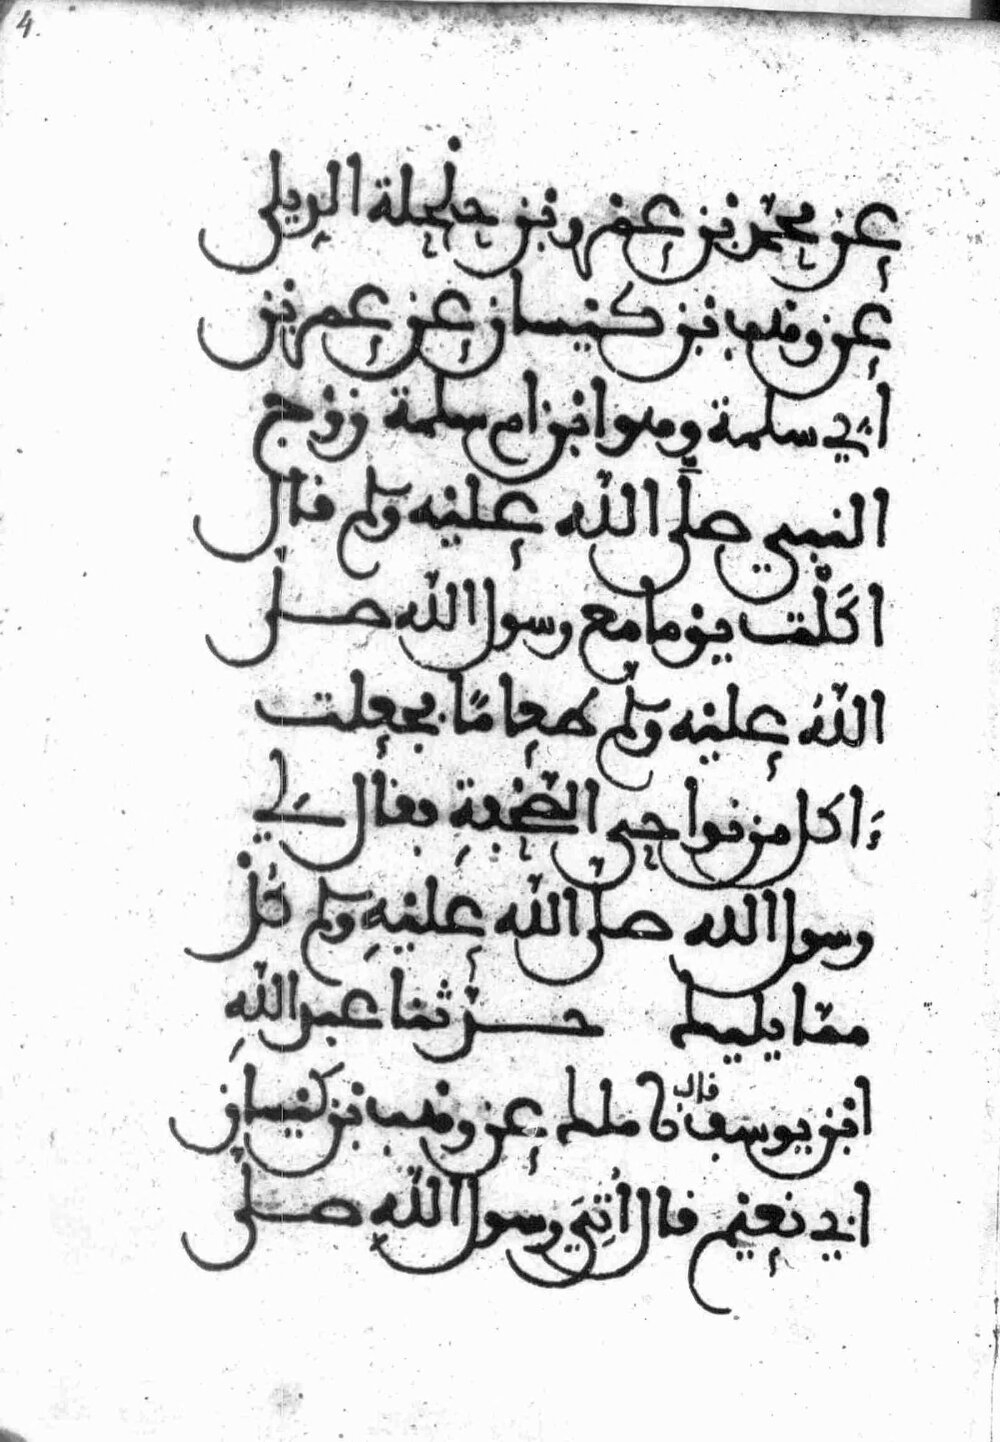 4.
عن محمد بن عمرو بن حلحلة الديلي
عن وهب بن كيسان عن عمر بن
ابي سلمة وهو ابن ام سلمة زوج
النبي صلى الله عليه وسلم قال
اكَلْت يوما مع رسول الله صلى
الله عليه وسلم طعامًا فجعلت
ءَاكل من نواحي الصَّحْفَةِ فقال لي
رسول الله صلى الله عليه وسلم كُلْ
ممّا يليك حدّثنا عبد الله
ابن يوسف قال نا ملك عن وهب بن كيسان
ابي نعيم قال أُتِيَ رسول الله صلى